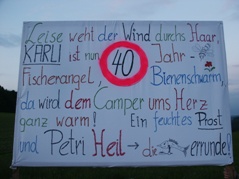 Leise weht der Wind durchs Haar,
KARLI ist nun 40 Jahr -
Fischerangel, Bienenschwarm,
da wird dem Camper ums Herz
ganz warm! Ein feuchtes Prost
und Petri Heil → die errunde!